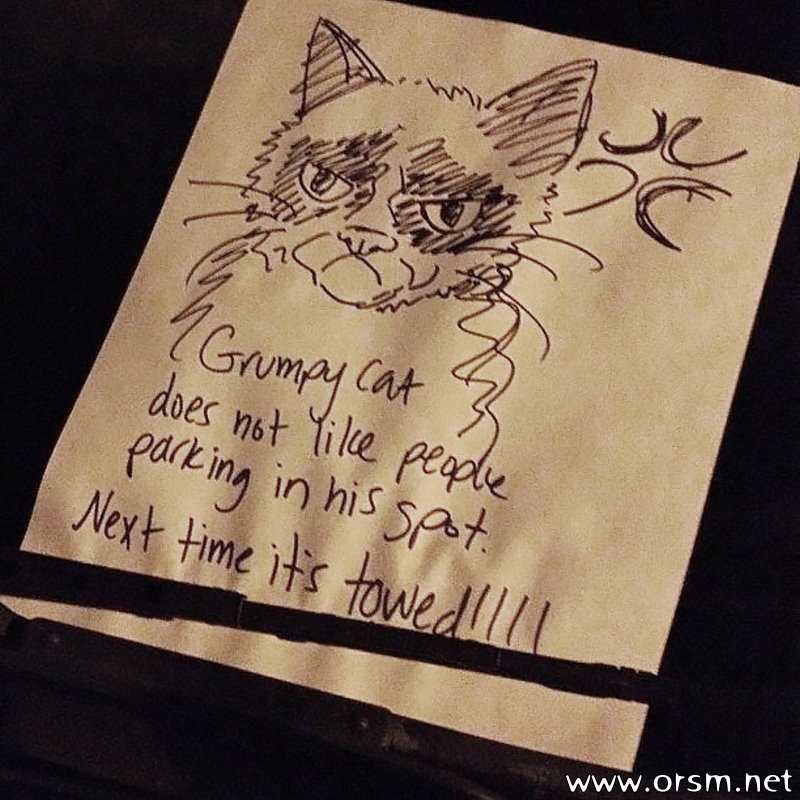 Grumpy cat
does not like people
parking in his spot.
Next time it's towed!!!!
www.orsm.net